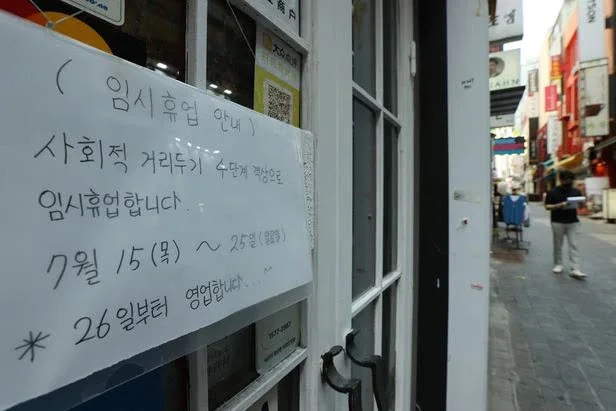 ( 임시휴업 안내 )
사회적 거리두기 4단계 격상으로
임시휴업합니다.
7월 15(목) ~ 25일(일요일)
* 26일부터 영업합니다...^^